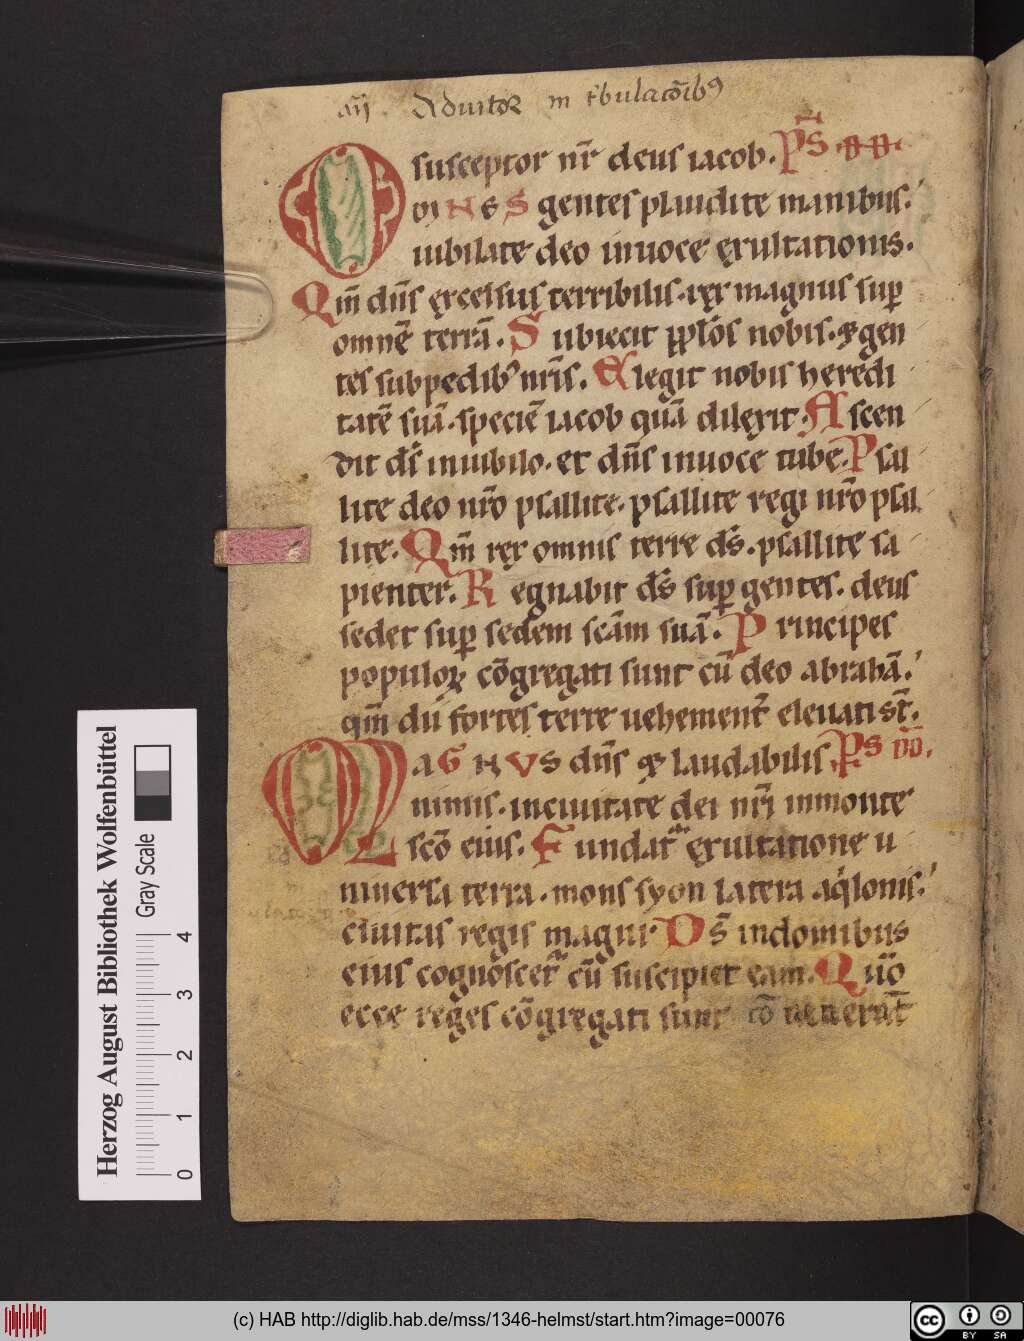 an̄. Adiutor in t̄bulacōibꝰ
susceptor nr̄ deus iacob. Ps̄
OMNES gentes plaudite manibus.
iubilate deo inuoce exultationis.
Qm̄ dn̄s excelsus terribilis. rex magnus sup̄
omnē terrā. Subiecit ppl̄os nobis. ⁊ gen
tes subpedibꝰ nr̄is. Elegit nobis heredi
tatē suā. speciē iacob quā dilexit. Ascen
dit ds̄ iniubilo. et dn̄s inuoce tube. Psal
lite deo nr̄o psallite. psallite regi nr̄o psal
lite. Qm̄ rex omnis terre ds̄. psallite sa
pienter. Regnabit ds̄ sup̄ gentes. deus
sedet sup̄ sedem scām suā. Principes
populoꝝ cōgregati sunt cū deo abrahā.
qm̄ dii fortes terre uehement̄ eleuati st̄.
MAGNUS dn̄s ⁊ laudabilis Ps̄
nimis. inciuitate dei nr̄i inmonte
scō eius. Fundat᷑ exultatione u
niuersa terra. mons syon latera aq̓lonis.
ciuitas regis magni. Ds̄ indomibus
eius cognoscet᷑ cū suscipiet eam. Qm̄
ecce reges cōgregati sunt cō uenerūt
Herzog August Bibliothek Wolfenbüttel
Gray Scale
0 1 2 3 4
(c) HAB http://diglib.hab.de/mss/1346-helmst/start.htm?image=00076
cc BY SA